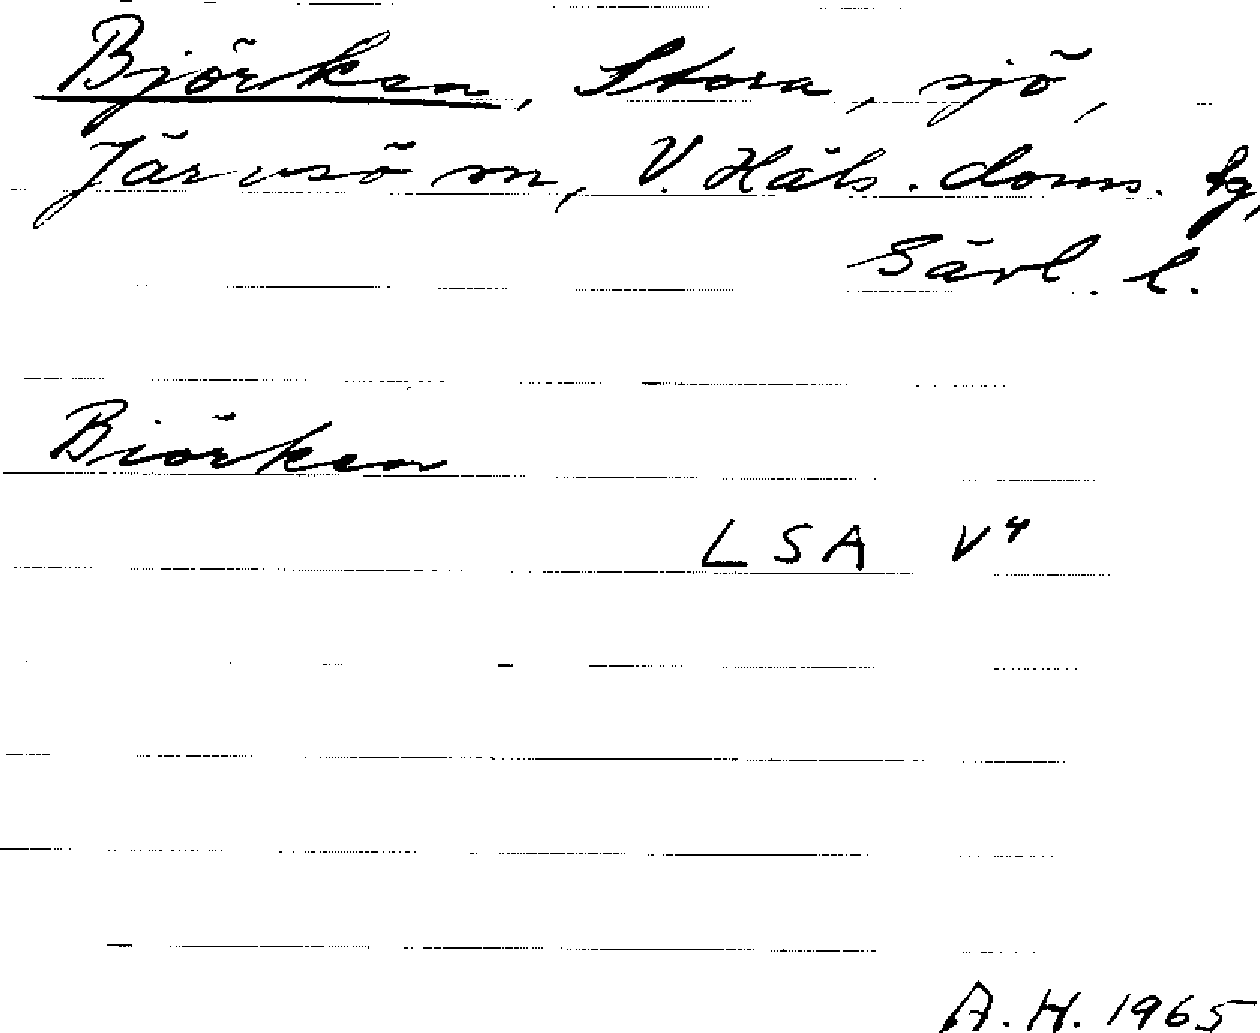 Björken, Stora, sjö,
Järvsö sn, V. Häls. doms. tg,
Gävl. l.
Biörken
LSA V4
A. H. 1965